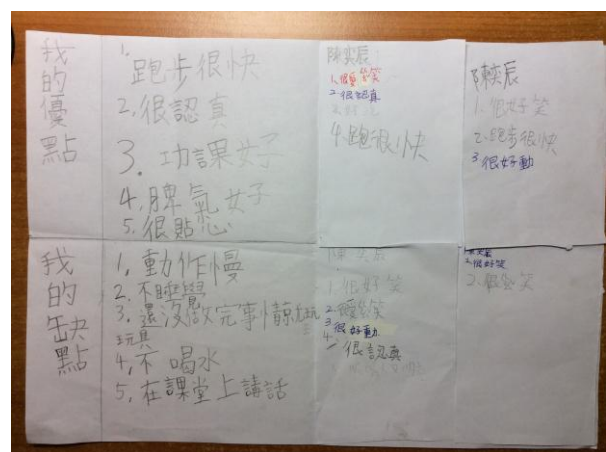 我的優點
1. 跑步很快
2. 很認真
3. 功課好
4. 脾氣好
5. 很貼心
陳奕辰
1. 很愛笑
2. 很認真
4. 跑很快
陳奕辰
1. 很好笑
2. 跑步很快
3. 很好動
我的缺點
1, 動作慢
2. 不睡覺
3. 還沒做完事情就玩
玩具
4, 不喝水
5, 在課堂上講話
陳奕辰
1. 很好笑
2. 愛笑
3 很好動
4 很認真
2. 很好笑
2. 愛笑